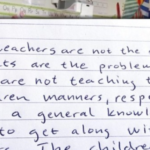 teachers are not the
are the problem
are not teaching
manners, resp
a general knowl
to get along wi
The children